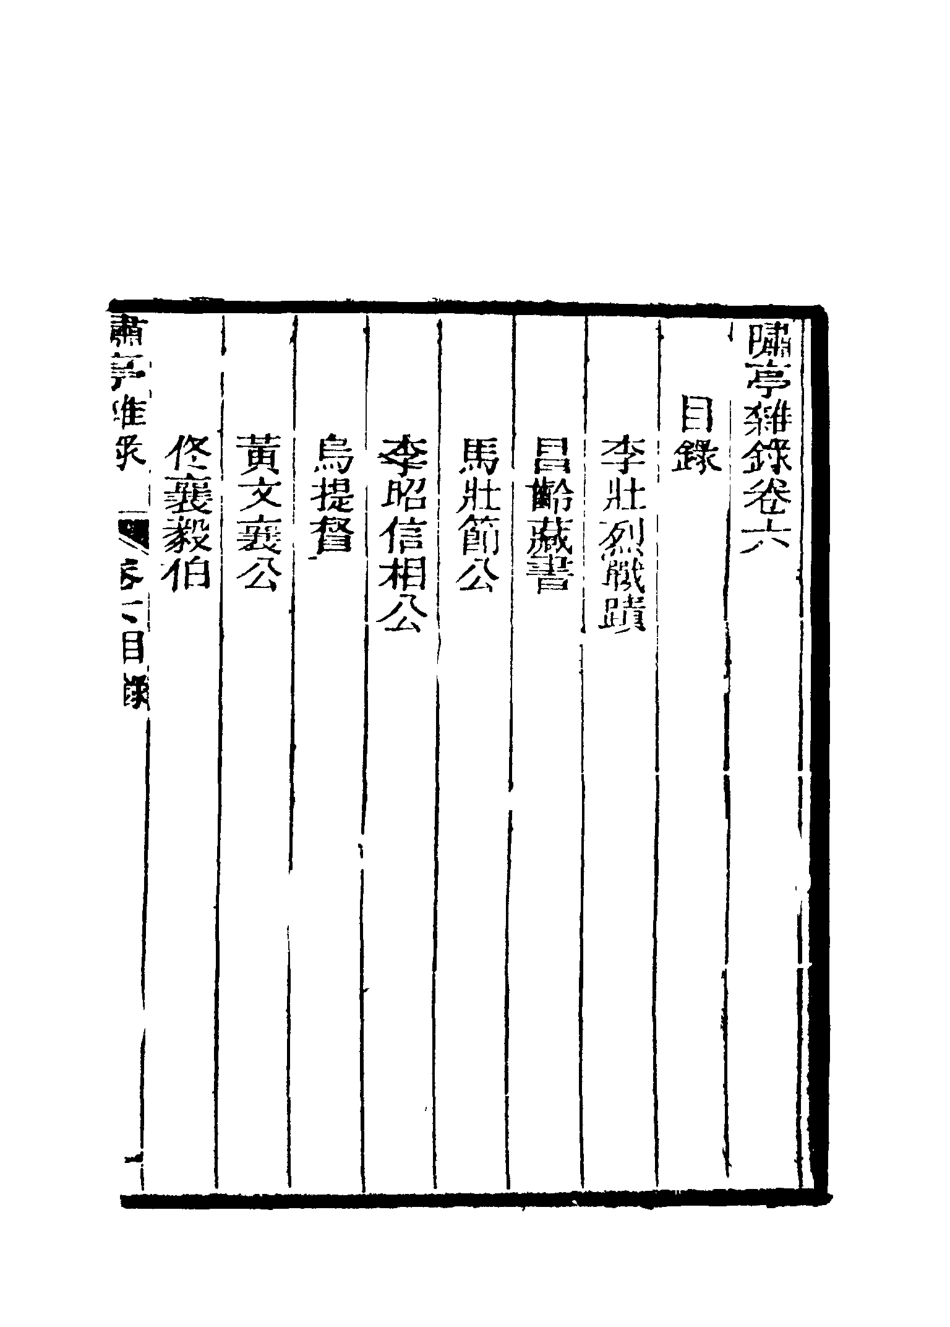 嘯亭雜錄卷六
目錄
李壯烈戰蹟
昌齡藏書
馬壯節公
李昭信相公
烏提督
黃文襄公
佟襄毅伯
嘯亭雜录 卷六目錄 一